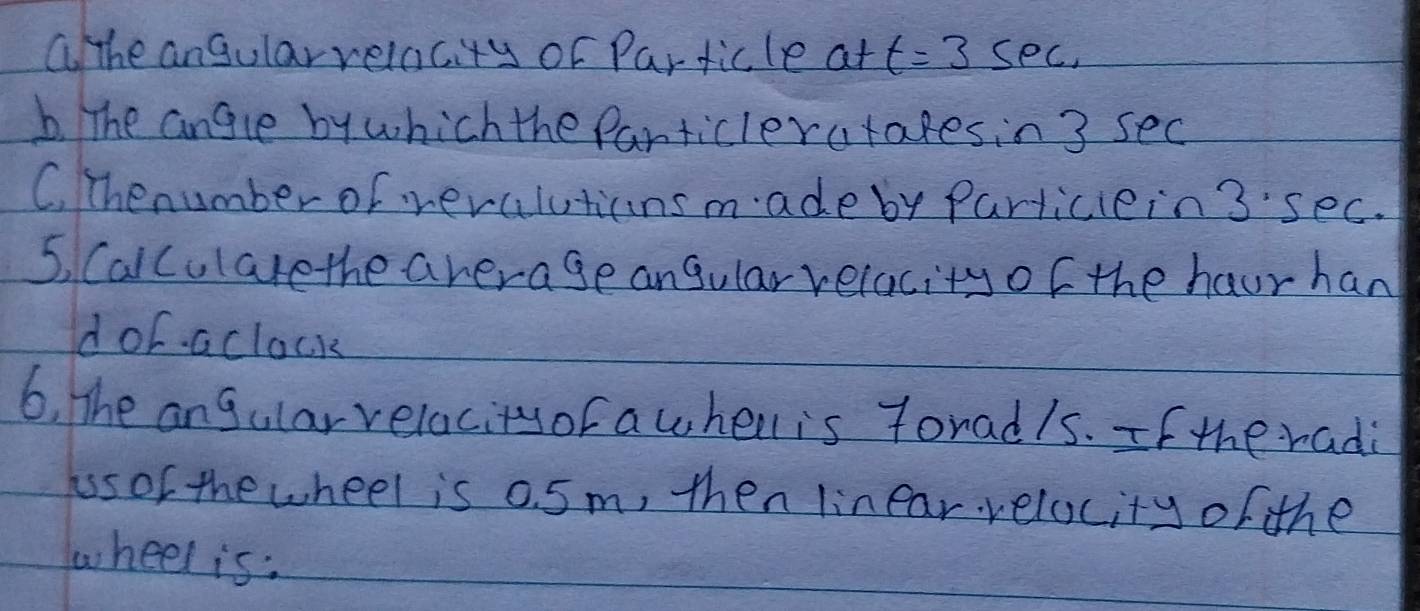 a. The angular velocity of Particle at t = 3 sec.
b. The angle by which the Particle rotates in 3 sec
C. The number of revolutions made by Particle in 3 sec.
5. Calculate the average angular velocity of the hour han
d of a clock
6. The angular velocity of a wheil is 70rad/s. If the radi
us of the wheel is 0.5m, then linear velocity of the
wheel is: